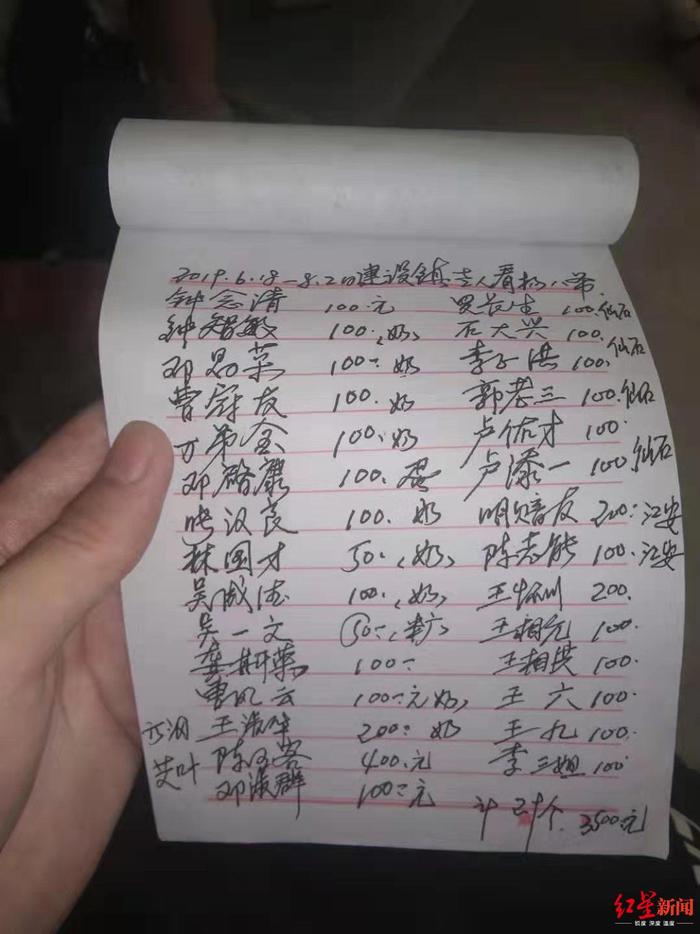 2019.6.18-8.2日建设镇老人看
钟念清 100.元 吴长生 100.仙石
钟智敏 100.、奶、 石大兴 100.仙石
邓思荣 100.奶 李子洪 100.仙石
曹冠友 100.奶 郭老三 100.仙石
万弟全 100.奶 卢佑才 100.
邓启康 100.蛋 卢添一 100.仙石
汉良 100.奶 明友 200.江安
林国才 50.、奶、 陈老能 100.江安
吴成 100.、奶、 王怀川 200.
吴一文 50.、 王相元 100.
龚斯荣 100. 王相洪 100.
曹凤云 100.元奶、 王六 100.
王淑华 200.奶 王九 100.
艾叶 陈客 400.元 李三姐 100
邓淑群 100.元
计 个. 3500元
红星新闻
锐度 深度 温度